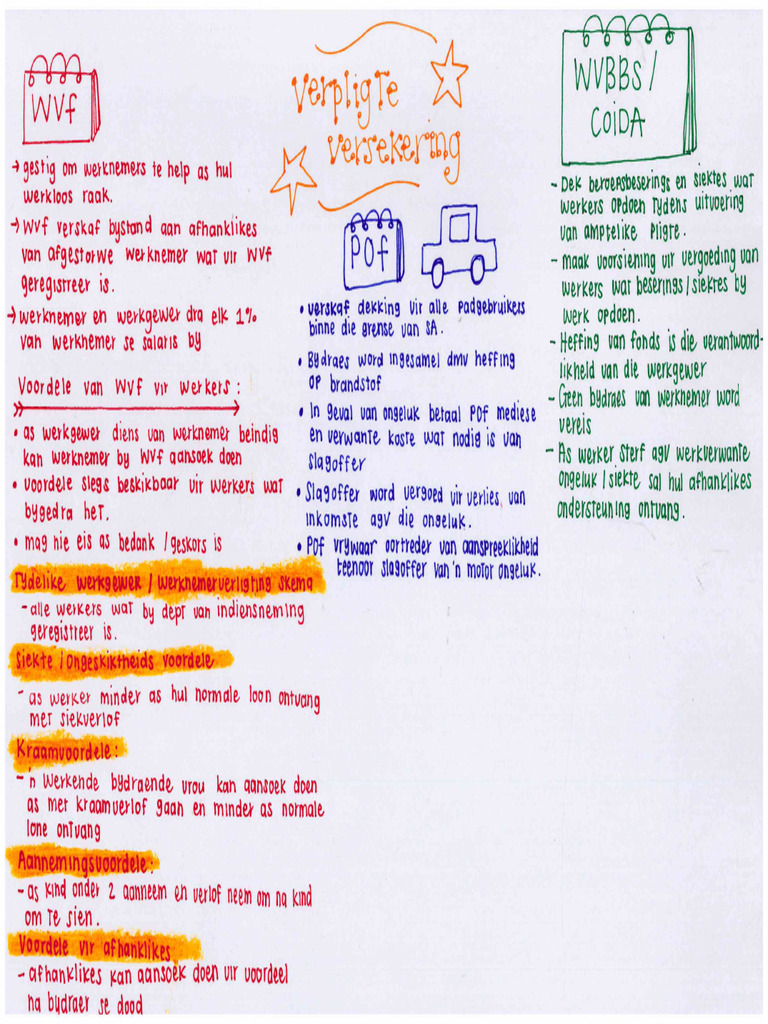 WVf
→ gestig om werknemers te help as hul
werkloos raak.
→ WVf verskaf bystand aan afhanklikes
van afgestorwe werknemer wat vir WVf
geregistreer is.
→ werknemer en werkgewer dra elk 1%
van werknemer se salaris by
Voordele van WVf vir werkers :
• as werkgewer diens van werknemer beindig
kan werknemer by WVf aansoek doen
• voordele slegs beskikbaar vir werkers wat
bygedra het.
• mag nie eis as bedank / geskors is
Tydelike werkgewer / werknemerverligting skema
- alle werkers wat by dept van indiensneming
geregistreer is.
Siekte / ongeskiktheids voordele
- as werker minder as hul normale loon ontvang
met siekverlof
Kraamvoordele :
- 'n werkende bydraende vrou kan aansoek doen
as met kraamverlof gaan en minder as normale
lone ontvang
Aannemingsvoordele :
- as kind onder 2 aanneem en verlof neem om na kind
om te sien.
Voordele vir afhanklikes
- afhanklikes kan aansoek doen vir voordeel
na bydraer se dood
Verpligte
versekering
POf
• verskaf dekking vir alle padgebruikers
binne die grense van SA.
• Bydraes word ingesamel dmv heffing
op brandstof
• In geval van ongeluk betaal POf mediese
en verwante koste wat nodig is van
slagoffer
• Slagoffer word vergoed vir verlies van
inkomste agv die ongeluk.
• POf vrywaar oortreder van aanspreeklikheid
teenoor slagoffer van 'n motor ongeluk.
WVBBS /
COiDA
- Dek beroepsbeserings en siektes wat
werkers opdoen tydens uitvoering
van amptelike pligte.
- maak voorsiening vir vergoeding van
werkers wat beserings / siektes by
werk opdoen.
- Heffing van fonds is die verantwoord-
likheid van die werkgewer
- Geen bydraes van werknemer word
vereis
- As werker sterf agv werkverwante
ongeluk / siekte sal hul afhanklikes
ondersteuning ontvang.